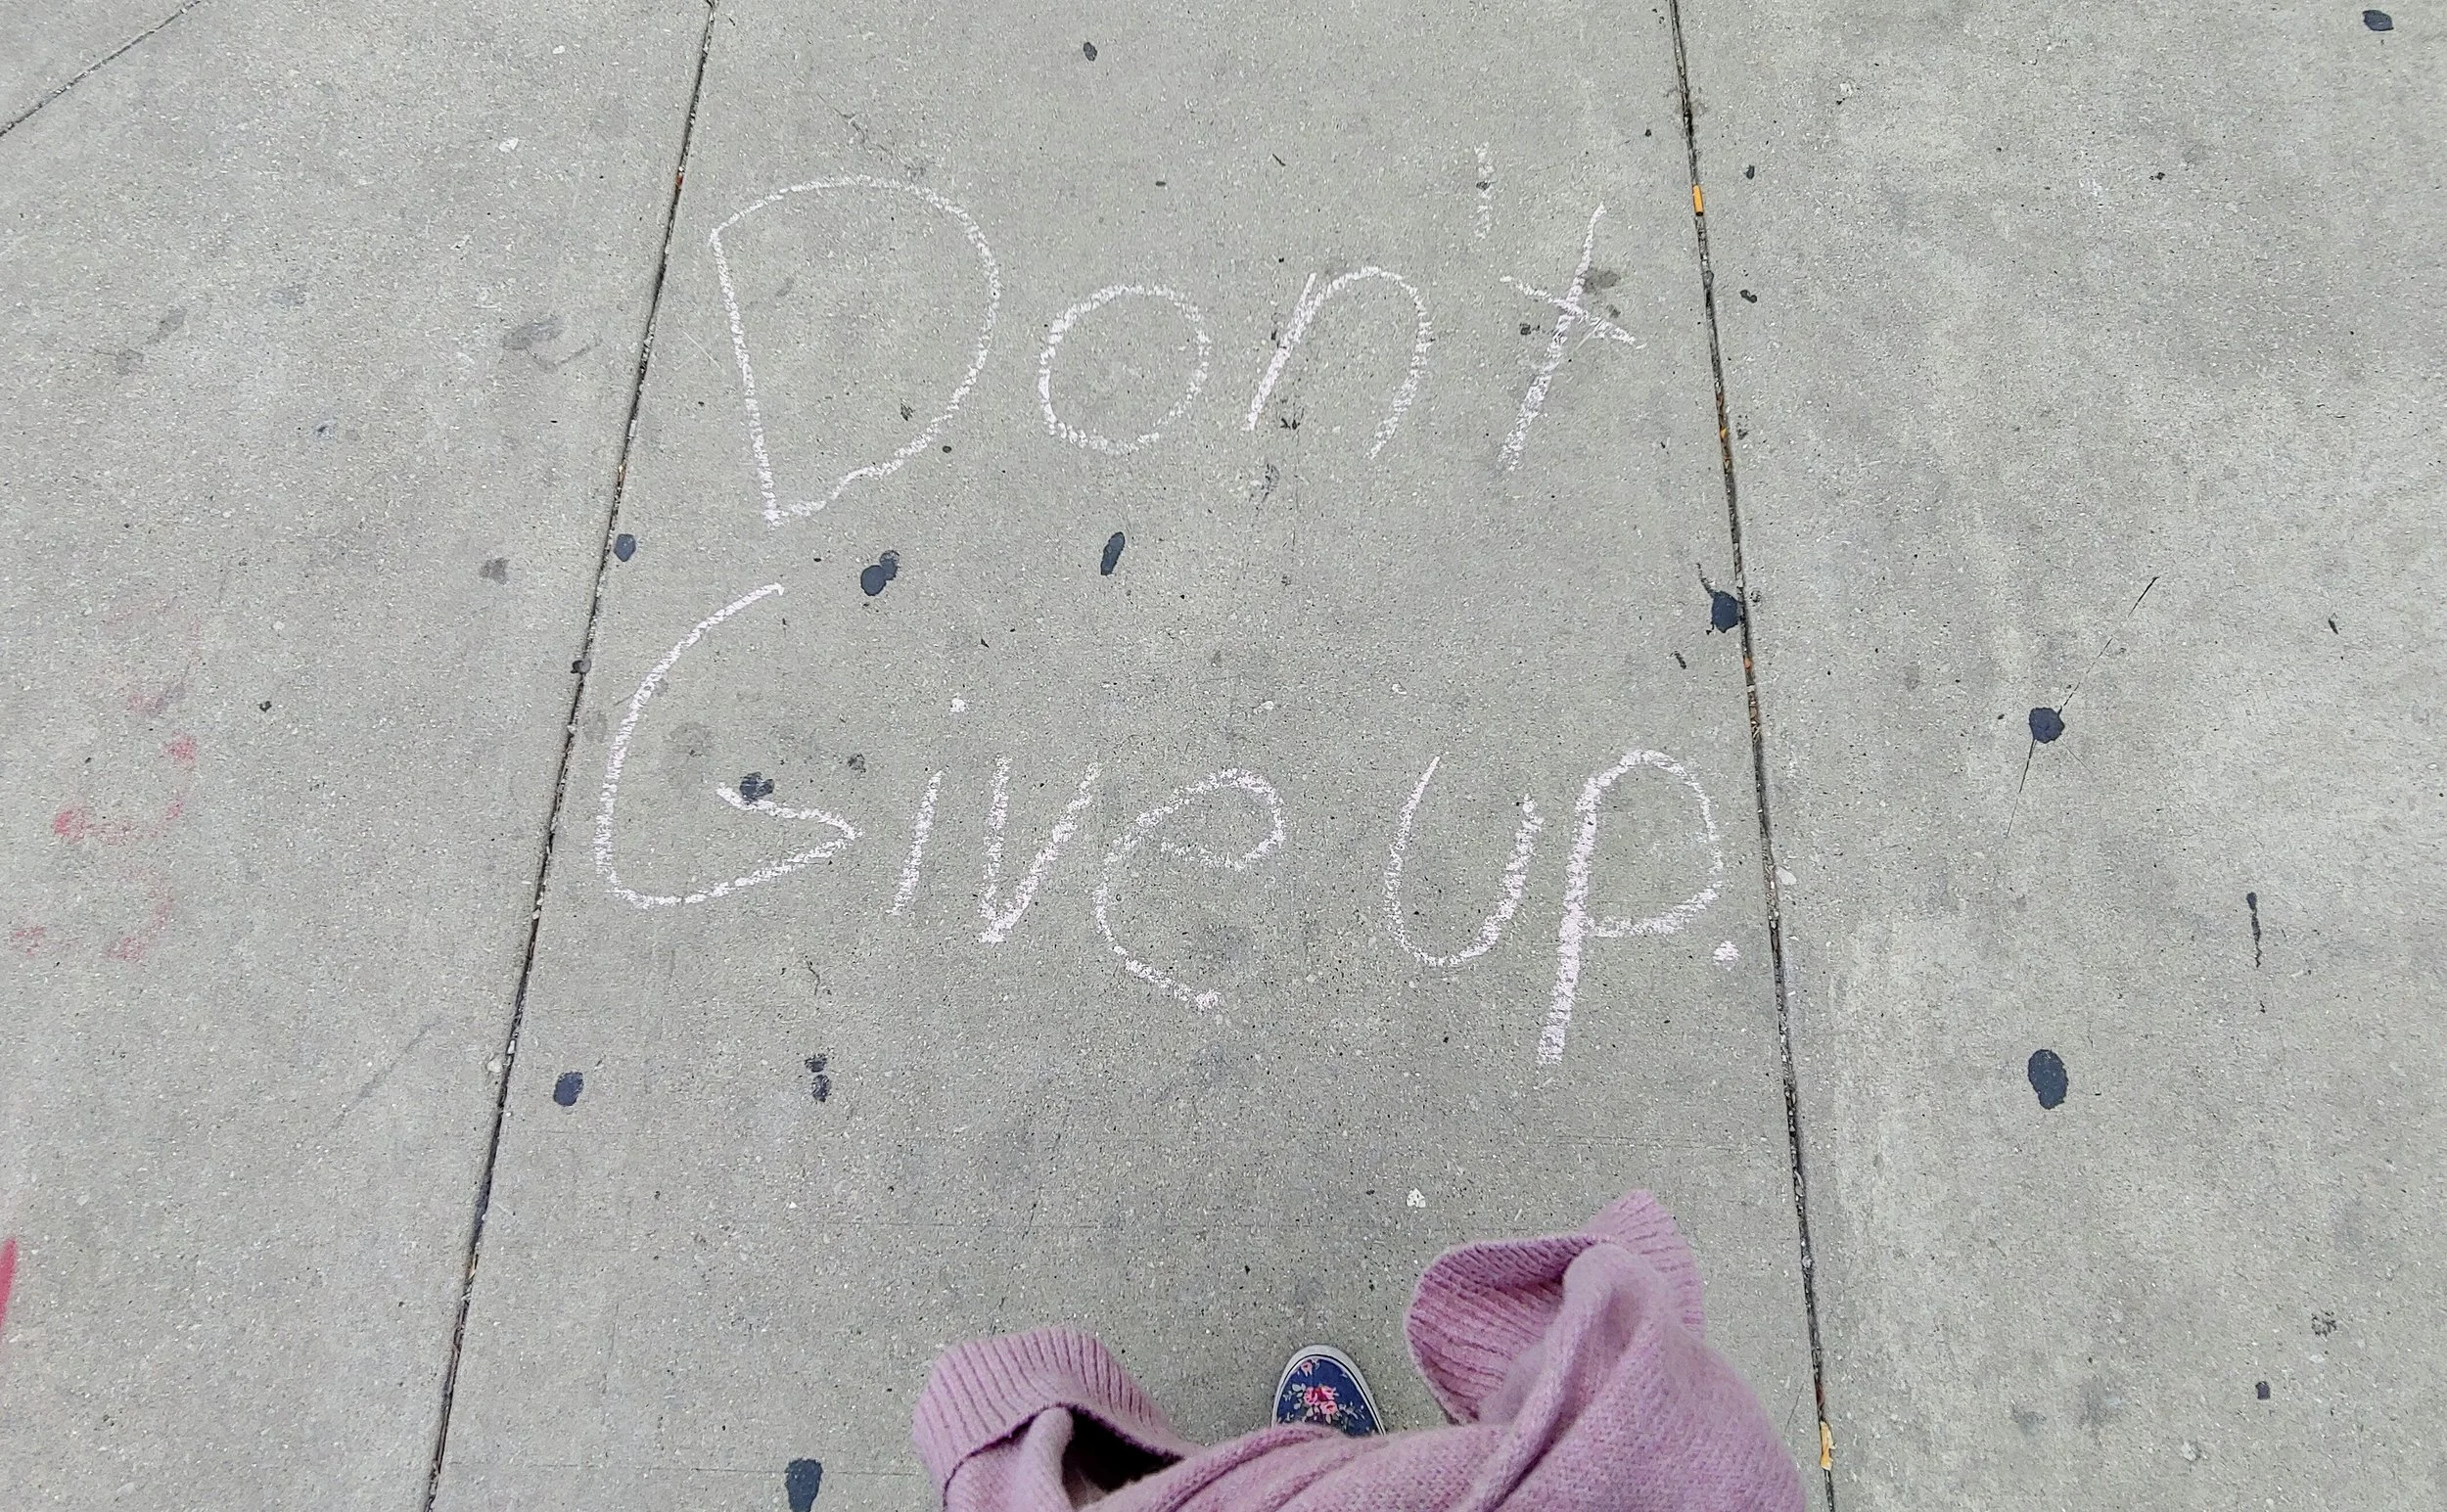 Don't
Give up.